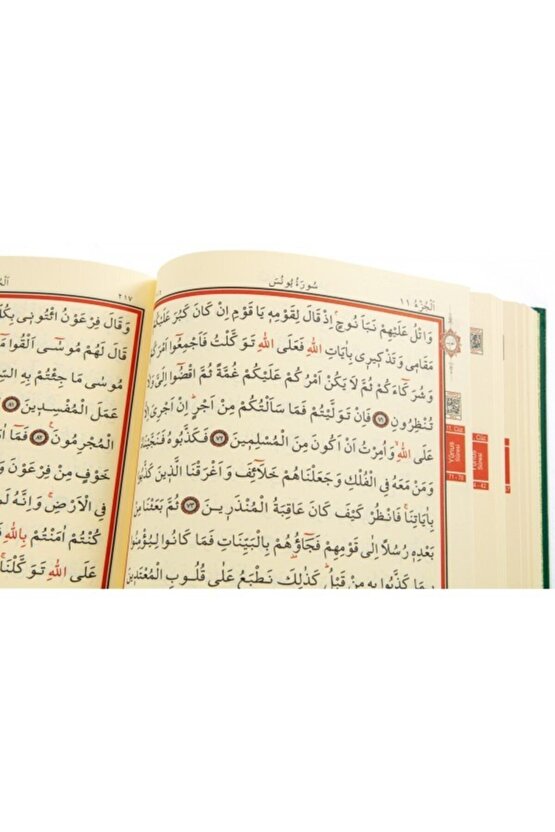 اَلْجُزْءُ ١١
سُورَةُ يُونُسَ
وَاتْلُ عَلَيْهِمْ نَبَاَ نُوحٍ اِذْ قَالَ لِقَوْمِهِ يَا قَوْمِ اِنْ كَانَ كَبُرَ عَلَيْكُمْ
مَقَامِي وَتَذْكِيرِي بِاٰيَاتِ اللّٰهِ فَعَلَى اللّٰهِ تَوَكَّلْتُ فَاَجْمِعُوٓا
وَشُرَكَٓاءَكُمْ ثُمَّ لَا يَكُنْ اَمْرُكُمْ عَلَيْكُمْ غُمَّةً ثُمَّ اقْضُٓوا اِلَيَّ وَلَا
تُنْظِرُونِ ﴿٧١﴾ فَاِنْ تَوَلَّيْتُمْ فَمَا سَاَلْتُكُمْ مِنْ اَجْرٍ اِنْ اَجْرِيَ
عَلَى اللّٰهِ وَاُمِرْتُ اَنْ اَكُونَ مِنَ الْمُسْلِمِينَ ﴿٧٢﴾ فَكَذَّبُوهُ فَنَجَّيْنَاهُ
وَمَنْ مَعَهُ فِي الْفُلْكِ وَجَعَلْنَاهُمْ خَلَٓائِفَ وَاَغْرَقْنَا الَّذِينَ كَذَّبُوا
بِاٰيَاتِنَا فَانْظُرْ كَيْفَ كَانَ عَاقِبَةُ الْمُنْذَرِينَ ﴿٧٣﴾ ثُمَّ بَعَثْنَا مِنْ
بَعْدِهِ رُسُلًا اِلٰى قَوْمِهِمْ فَجَٓاؤُهُمْ بِالْبَيِّنَاتِ فَمَا كَانُوا لِيُؤْمِنُوا
بِمَا كَذَّبُوا بِهِ مِنْ قَبْلُ كَذٰلِكَ نَطْبَعُ عَلٰى قُلُوبِ الْمُعْتَدِينَ
11. Cüz
Yûnus
Sûresi
71 - 78
٢١٧
وَقَالَ فِرْعَوْنُ ائْتُونِي بِكُلِّ
قَالَ لَهُمْ مُوسٰٓى اَلْقُوا
مُوسٰى مَا جِئْتُمْ بِهِ
عَمَلَ الْمُفْسِدِينَ ﴿٨١﴾
الْمُجْرِمُونَ ﴿٨٢﴾ فَمَٓا
خَوْفٍ مِنْ فِرْعَوْنَ
فِي الْاَرْضِ وَاِنَّهُ
كُنْتُمْ اٰمَنْتُمْ بِاللّٰهِ
عَلَى اللّٰهِ تَوَكَّلْنَا